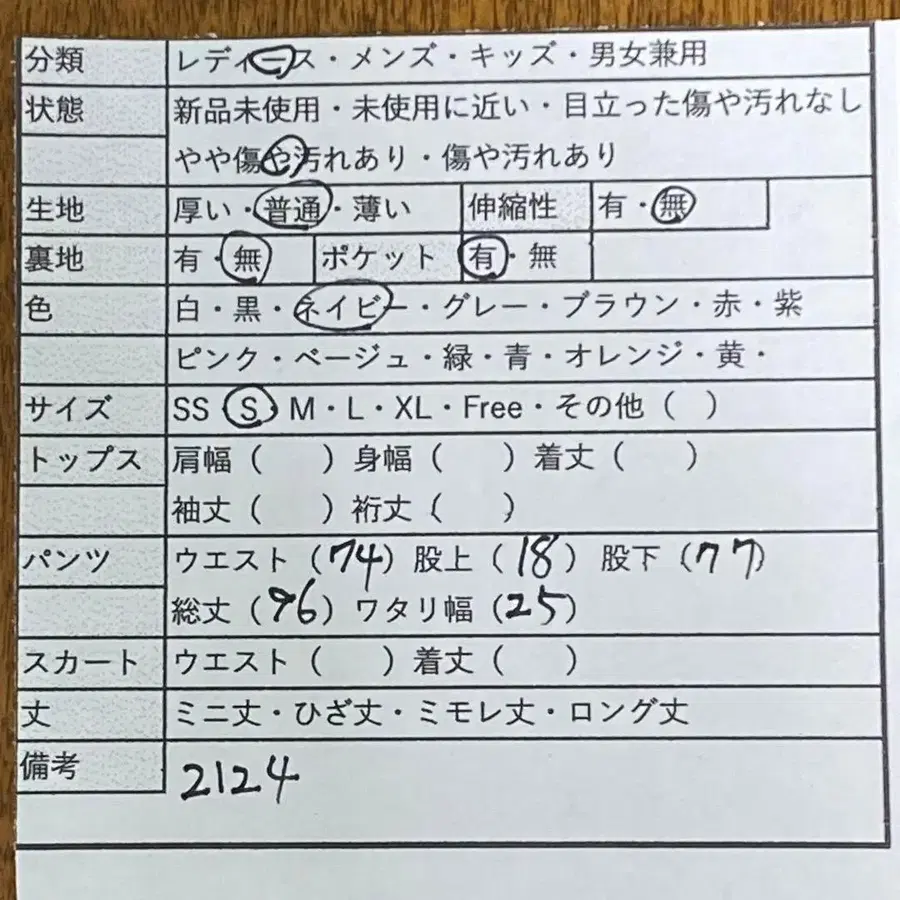 分類 レディース・メンズ・キッズ・男女兼用
状態 新品未使用・未使用に近い・目立った傷や汚れなし
やや傷や汚れあり・傷や汚れあり
生地 厚い・普通・薄い 伸縮性 有・無
裏地 有・無 ポケット 有・無
色 白・黒・ネイビー・グレー・ブラウン・赤・紫
ピンク・ベージュ・緑・青・オレンジ・黄・
サイズ SS・S・M・L・XL・Free・その他（ ）
トップス 肩幅（ ）身幅（ ）着丈（ ）
袖丈（ ）裄丈（ ）
パンツ ウエスト（74）股上（18）股下（77）
総丈（96）ワタリ幅（25）
スカート ウエスト（ ）着丈（ ）
丈 ミニ丈・ひざ丈・ミモレ丈・ロング丈
備考 2124